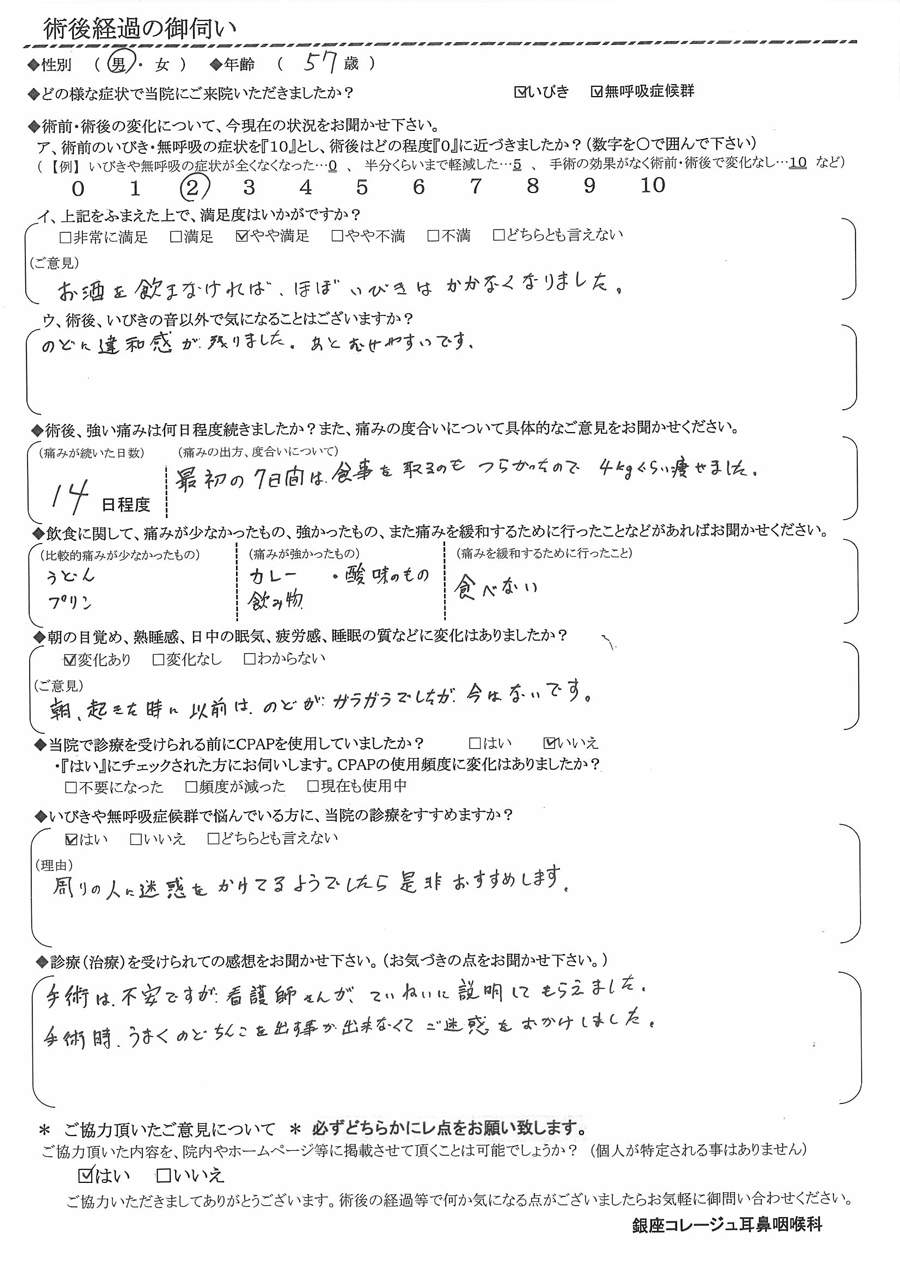 術後経過の御伺い
◆性別 (男・女) ◆年齢 (57歳)
◆どの様な症状で当院にご来院いただきましたか? ☑いびき ☑無呼吸症候群
◆術前・術後の変化について、今現在の状況をお聞かせ下さい。
ア、術前のいびき・無呼吸の症状を『10』とし、術後はどの程度『0』に近づきましたか?(数字を〇で囲んで下さい)
(【例】いびきや無呼吸の症状が全くなくなった…0 、 半分くらいまで軽減した…5 、 手術の効果がなく術前・術後で変化なし…10 など)
0 1 2 3 4 5 6 7 8 9 10
イ、上記をふまえた上で、満足度はいかがですか?
□非常に満足 □満足 ☑やや満足 □やや不満 □不満 □どちらとも言えない
(ご意見)
お酒を飲まなければ、ほぼいびきはかかなくなりました。
ウ、術後、いびきの音以外で気になることはございますか?
のどに違和感が残りました。あとむせやすいです。
◆術後、強い痛みは何日程度続きましたか?また、痛みの度合いについて具体的なご意見をお聞かせください。
(痛みが続いた日数) (痛みの出方、度合いについて)
14日程度 最初の7日間は、食事を取るのもつらかったので4kgくらい痩せました。
◆飲食に関して、痛みが少なかったもの、強かったもの、また痛みを緩和するために行ったことなどがあればお聞かせください。
(比較的痛みが少なかったもの) (痛みが強かったもの) (痛みを緩和するために行ったこと)
うどん カレー ・酸味のもの 食べない
プリン 飲み物
◆朝の目覚め、熟睡感、日中の眠気、疲労感、睡眠の質などに変化はありましたか?
☑変化あり □変化なし □わからない
(ご意見)
朝、起きた時に以前は、のどがガラガラでしたが、今はないです。
◆当院で診療を受けられる前にCPAPを使用していましたか? □はい ☑いいえ
・『はい』にチェックされた方にお伺いします。CPAPの使用頻度に変化はありましたか?
□不要になった □頻度が減った □現在も使用中
◆いびきや無呼吸症候群で悩んでいる方に、当院の診療をすすめますか?
☑はい □いいえ □どちらとも言えない
(理由)
周りの人に迷惑をかけてるようでしたら是非おすすめします。
◆診療(治療)を受けられての感想をお聞かせ下さい。(お気づきの点をお聞かせ下さい。)
手術は、不安ですが、看護師さんが、ていねいに説明してもらえました。
手術時、うまくのどちんこを出す事が出来なくてご迷惑をおかけしました。
* ご協力頂いたご意見について * 必ずどちらかにレ点をお願い致します。
ご協力頂いた内容を、院内やホームページ等に掲載させて頂くことは可能でしょうか? (個人が特定される事はありません)
☑はい □いいえ
ご協力いただきましてありがとうございます。術後の経過等で何か気になる点がございましたらお気軽に御問い合わせください。
銀座コレージュ耳鼻咽喉科